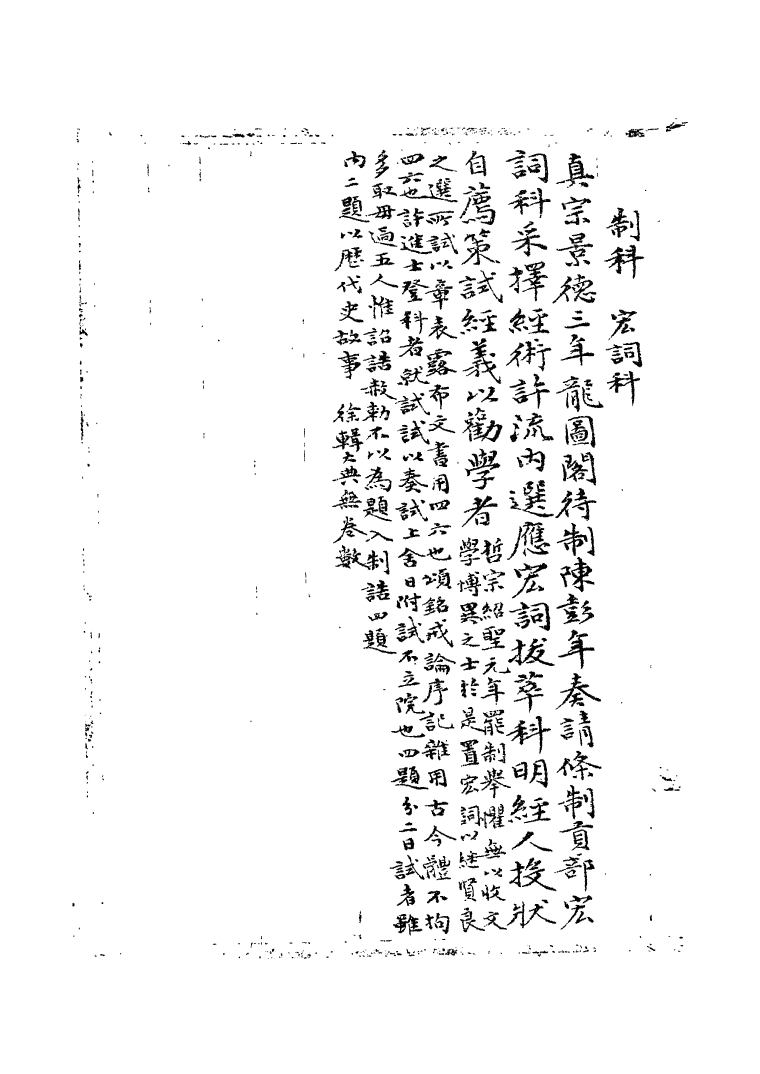 制科 宏詞科
真宗景德三年龍圖閣待制陳彭年奏請條制貢部宏
詞科采擇經術許流內選應宏詞拔萃科明經人投狀
自薦策試經義以勸學者
哲宗紹聖元年罷制舉懼無以收文
學博異之士於是置宏詞以繼賢良
之選所試以章表露布文書用四六也頌銘戒論序記雜用古今體不拘
四六也許進士登科者就試試以奏試上舍日附試不立院也四題分二日試者雖
多取毋過五人惟詔誥赦勑不以為題入制誥四題
內二題以歷代史故事 徐輯大典無卷數